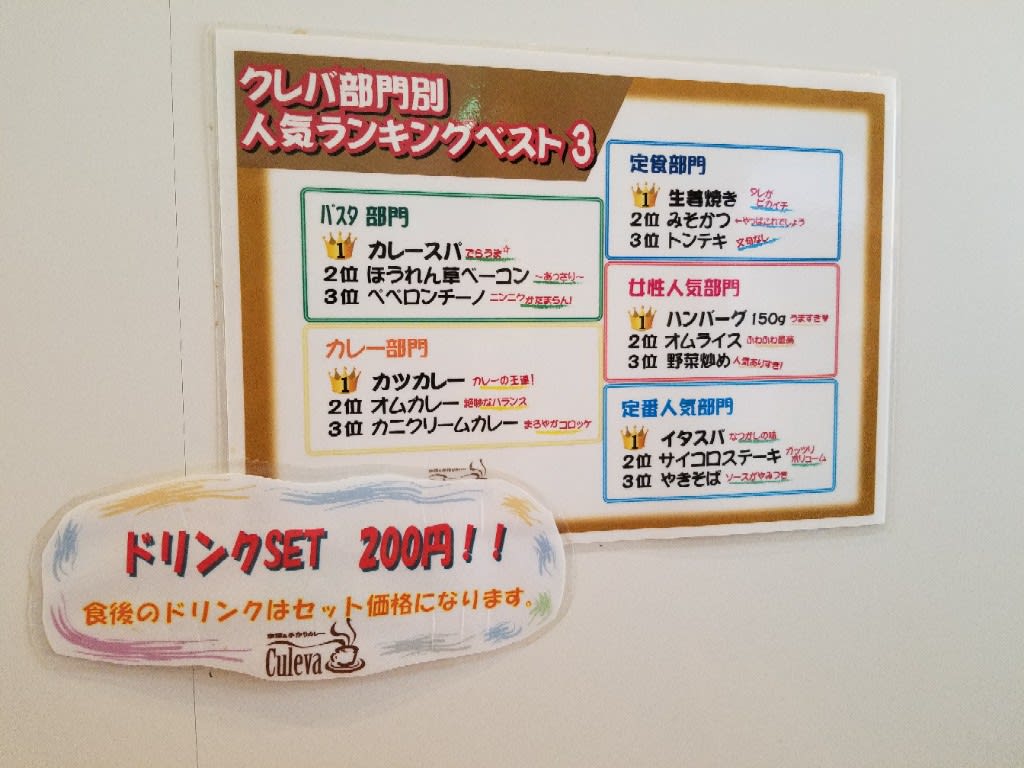 クレバ部門別
人気ランキングベスト3
パスタ 部門
1 カレースパ でらうま☆
2位 ほうれん草ベーコン ～あっさり～
3位 ペペロンチーノ ニンニクがたまらん!
カレー部門
1 カツカレー カレーの王道!
2位 オムカレー 絶妙なバランス
3位 カニクリームカレー まろやかコロッケ
定食部門
1 生姜焼き タレが
ピカイチ
2位 みそかつ ←やっぱこれでしょう
3位 トンテキ 文句なし
女性人気部門
1 ハンバーグ 150g うますぎ♥
2位 オムライス ふわふわ最高
3位 野菜炒め 人気ありすぎ!
定番人気部門
1 イタスパ なつかしの味
2位 サイコロステーキ ガッツリ
ボリューム
3位 やきそば ソースがやみつき
ドリンクSET 200円!!
食後のドリンクはセット価格になります。
Culeva